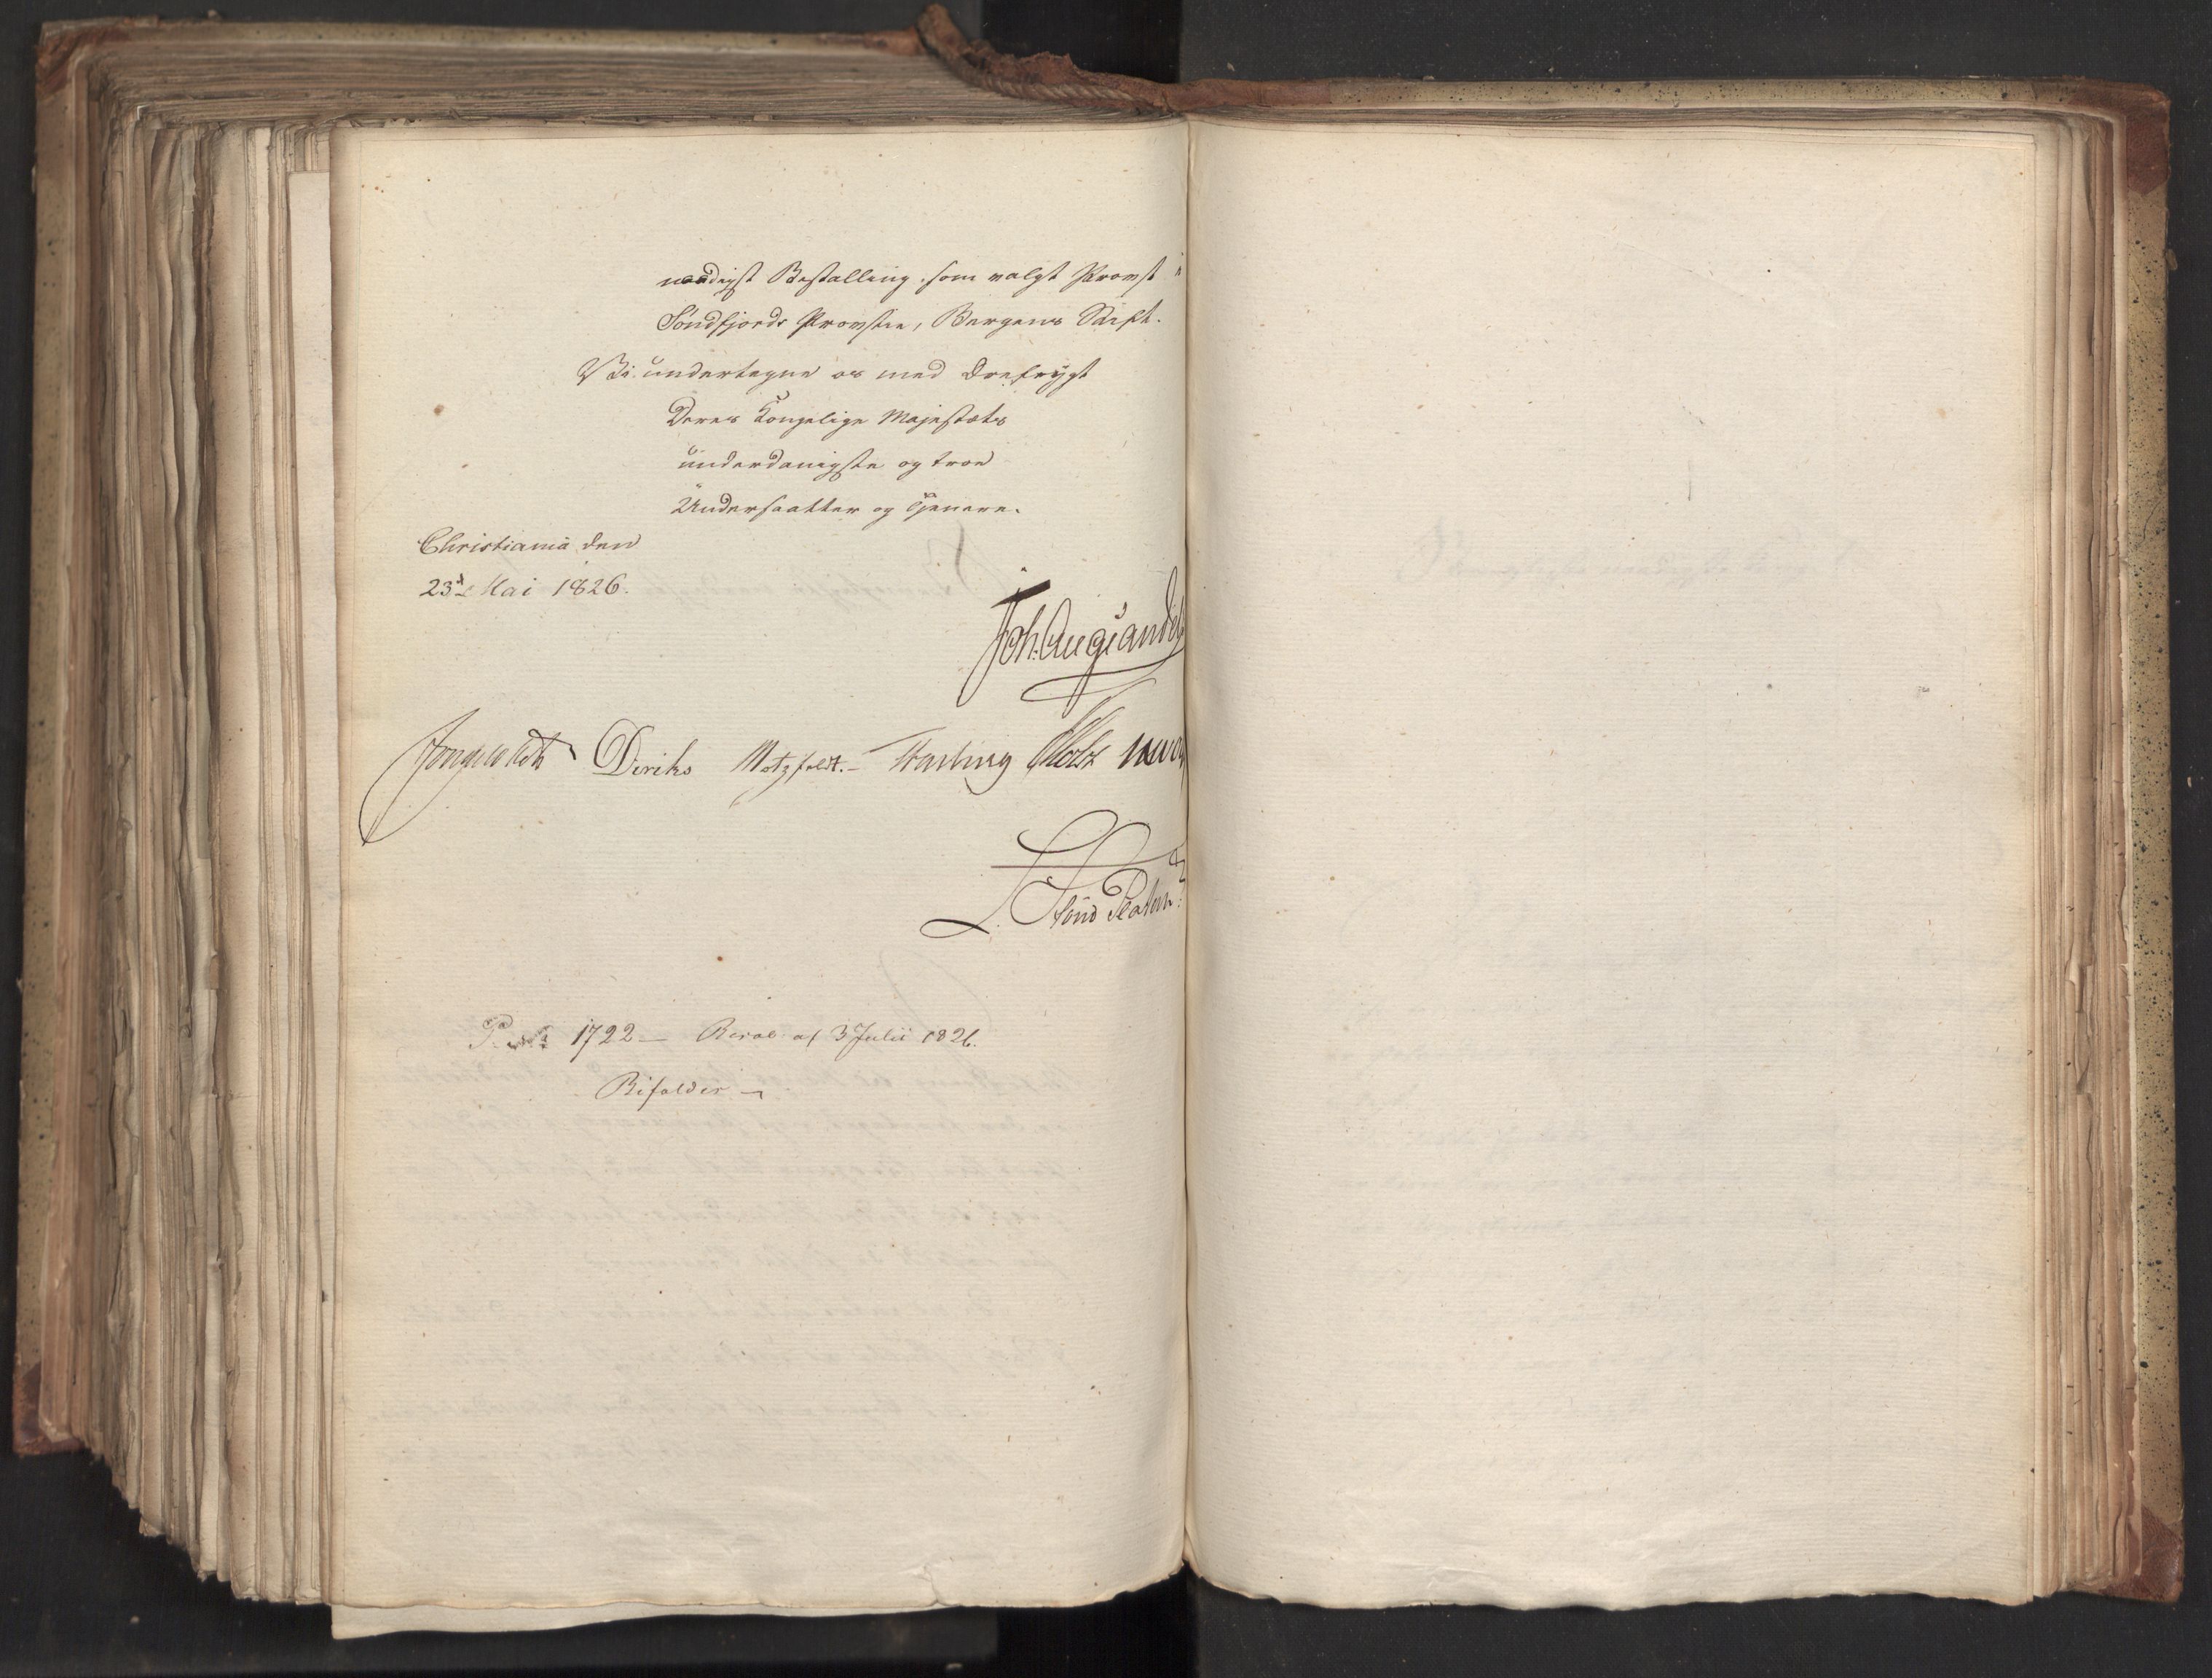 naadigst Bestalling som valgt Provst i
Søndfjords Provstie, Bergens Stift.
Vi undertegne os med Ærefrygt
Deres Kongelige Majestæts
underdanigste og troe
Undersaatter og Tjenere.
Christiania den
23d Mai 1826.
Joh: Aug: Sandels
Diriks Motzfeldt. Fasting Holst
P. No 1722 — Resol. af 3 Julii 1826.
Bifaldes —